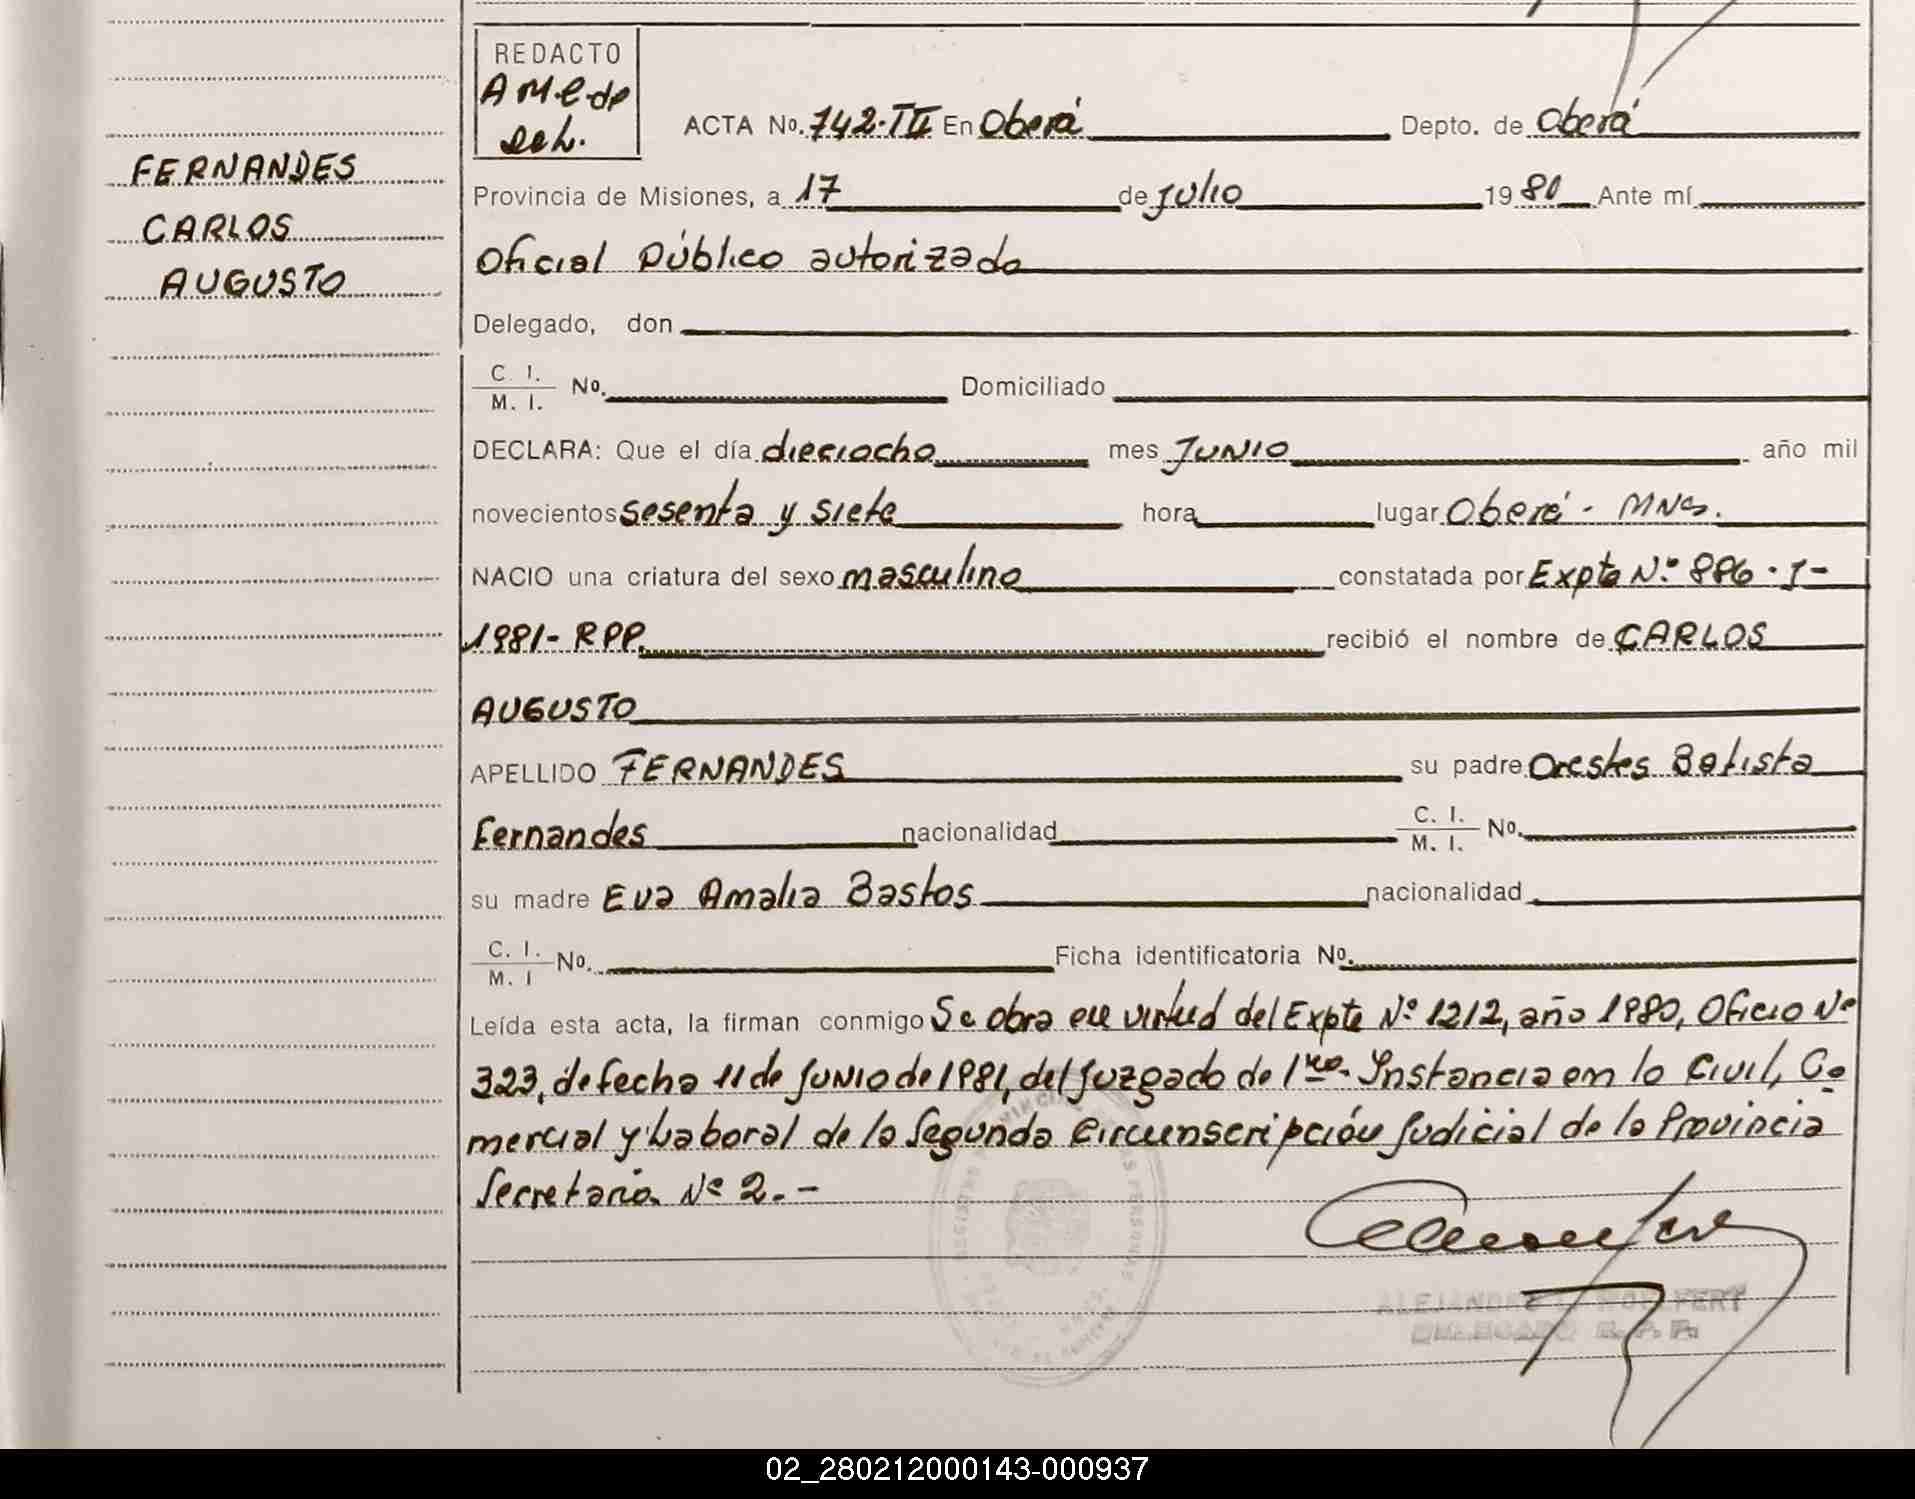 REDACTO
A M.C. de
ACTA No. 742-III En Oberá Depto. de Oberá
FERNANDES
CARLOS
AUGUSTO
Provincia de Misiones, a 17 de Julio 1981 Ante mí
Oficial Público autorizado
Delegado, don
C. I.
M. I. No. Domiciliado
DECLARA: Que el día dieciocho mes JUNIO año mil
novecientos sesenta y siete hora lugar Oberá - MNes.
NACIO una criatura del sexo masculino constatada por Expte Nº 886 - J -
1981- RPP. recibió el nombre de CARLOS
AUGUSTO
APELLIDO FERNANDES su padre Orestes Batista
Fernandes nacionalidad C. I. M. I. No.
su madre Eva Amalia Bastos nacionalidad
C. I.
M. I No. Ficha identificatoria No.
Leída esta acta, la firman conmigo Se obra en virtud del Expte Nº 1212, año 1980, Oficio Nº
323, de fecha 11 de JUNIO de 1981, del Juzgado de 1ra. Instancia en lo Civil, Co
mercial y Laboral de la Segunda Circunscripción Judicial de la Provincia
Secretaria Nº 2.-
REGISTRO PROVINCIAL DE LAS PERSONAS
ALEJANDRO WOLFERT
DELEGADO R. P. P.
02_280212000143-000937